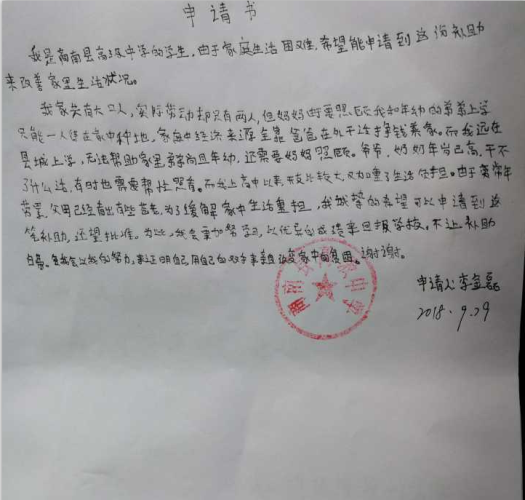 申请书
我是商南县高级中学的学生,由于家庭生活困难,希望能申请到这份补助
来改善家里生活状况。
我家共有六口人,实际劳动却只有两人,但妈妈要照顾我和年幼的弟弟上学
只能一人待在家中种地,家庭中经济来源全靠爸爸在外干活挣钱养家。而我远在
县城上学,无法帮助家里弟弟尚且年幼,还需要妈妈照顾。爷爷,奶奶年岁已高,干不
了什么活,有时也需要帮忙照看。而我上高中以来开支比较大,又加重了生活负担。由于常年
劳累,父母已经有些,为了缓解家中生活重担,我诚挚的希望可以申请到这
笔补助,还望批准。为此,我会更加努力,以优异的成绩来回报学校,不让补助
白费。我会以我的努力,来证明自己,用自己的双手来改变家中的贫困。谢谢。
商南县高级中学
申请人:李
2018.9.29